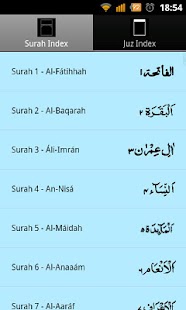 18:54
Surah Index
Juz Index
Surah 1 - Al-Fátihhah
الفاتحة ١
Surah 2 - Al-Baqarah
البقرة ٢
Surah 3 - Áli-Imrán
اٰل عمرٰن ٣
Surah 4 - An-Nisá
النساء ٤
Surah 5 - Al-Máidah
المآئدة ٥
Surah 6 - Al-Anaaám
الانعام ٦
Surah 7 - Al-Aaráf